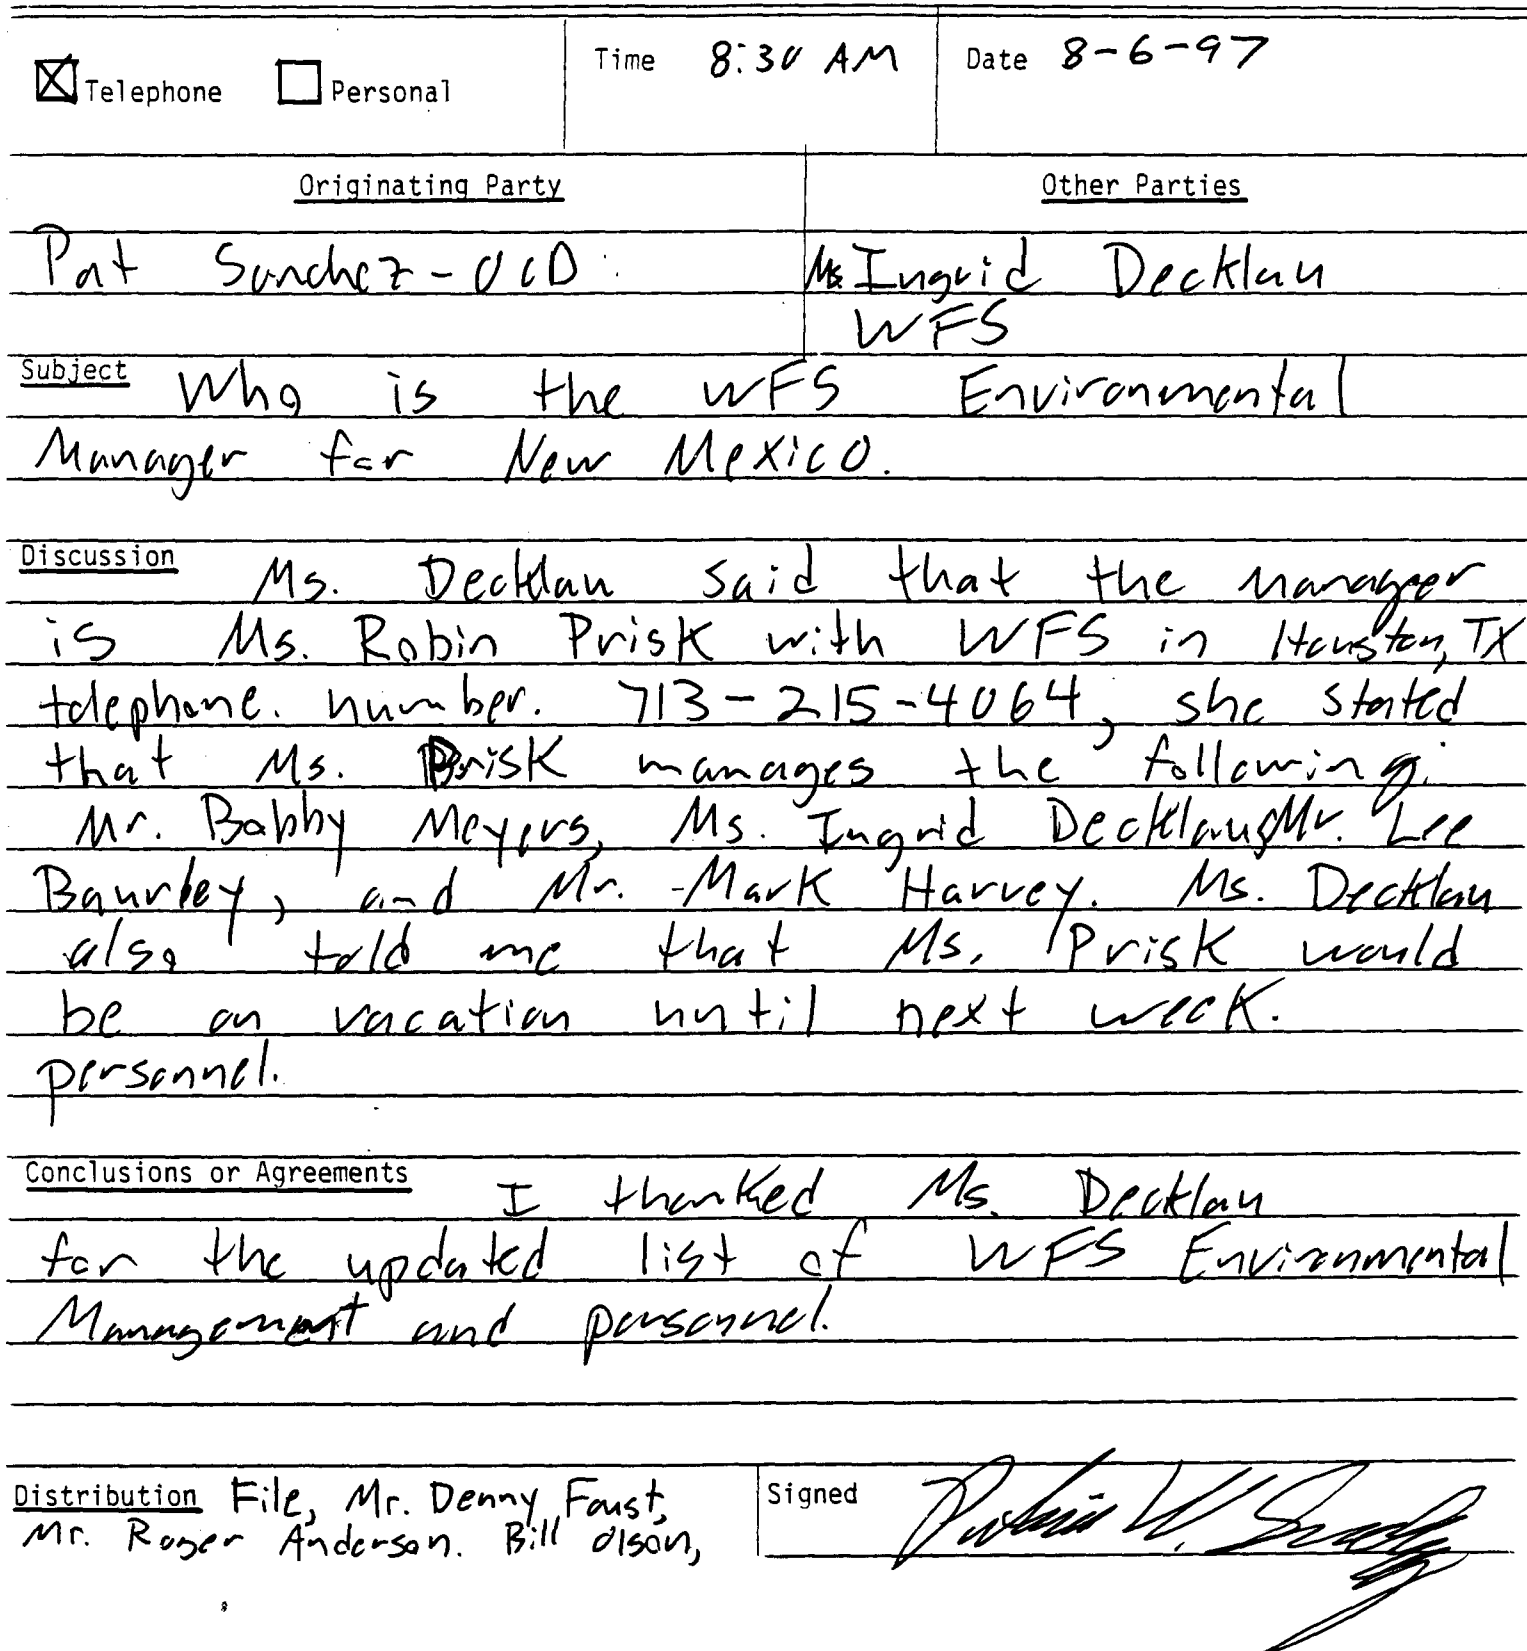 ☒ Telephone ☐ Personal Time 8:30 AM Date 8-6-97
Originating Party Other Parties
Pat Sanchez - OCD Ms. Ingrid Decklau
WFS
Subject Who is the WFS Environmental
Manager for New Mexico.
Discussion Ms. Decklau said that the manager
is Ms. Robin Prisk with WFS in Houston, TX
telephone. number. 713-215-4064, she stated
that Ms. Prisk manages the following:
Mr. Bobby Meyers, Ms. Ingrid Decklau, Mr. Lee
and Mr. Mark Harvey. Ms. Decklau
also told me that Ms. Prisk would
be on vacation until next week.
personnel.
Conclusions or Agreements I thanked Ms. Decklau
for the updated list of WFS Environmental
Management and personnel.
Distribution File, Mr. Denny Foust, Signed
Mr. Roger Anderson. Bill Olson,